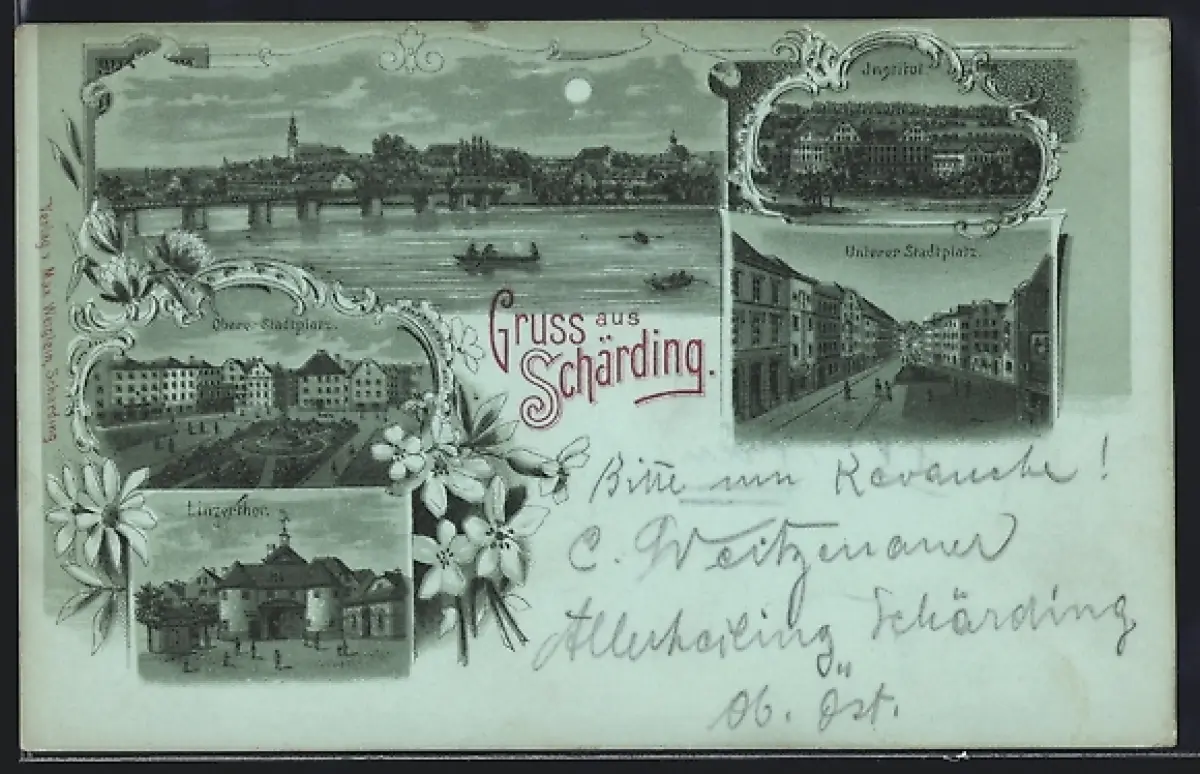 Institut.
Unterer Stadtplatz.
Oberer Stadtplatz.
Gruss aus
Schärding.
Linzerthor.
Verlag v. Max Schärding
Bitte um Revanche!
C. Weitzenauer
Allerheiling Schärding
"
Ob. Öst.